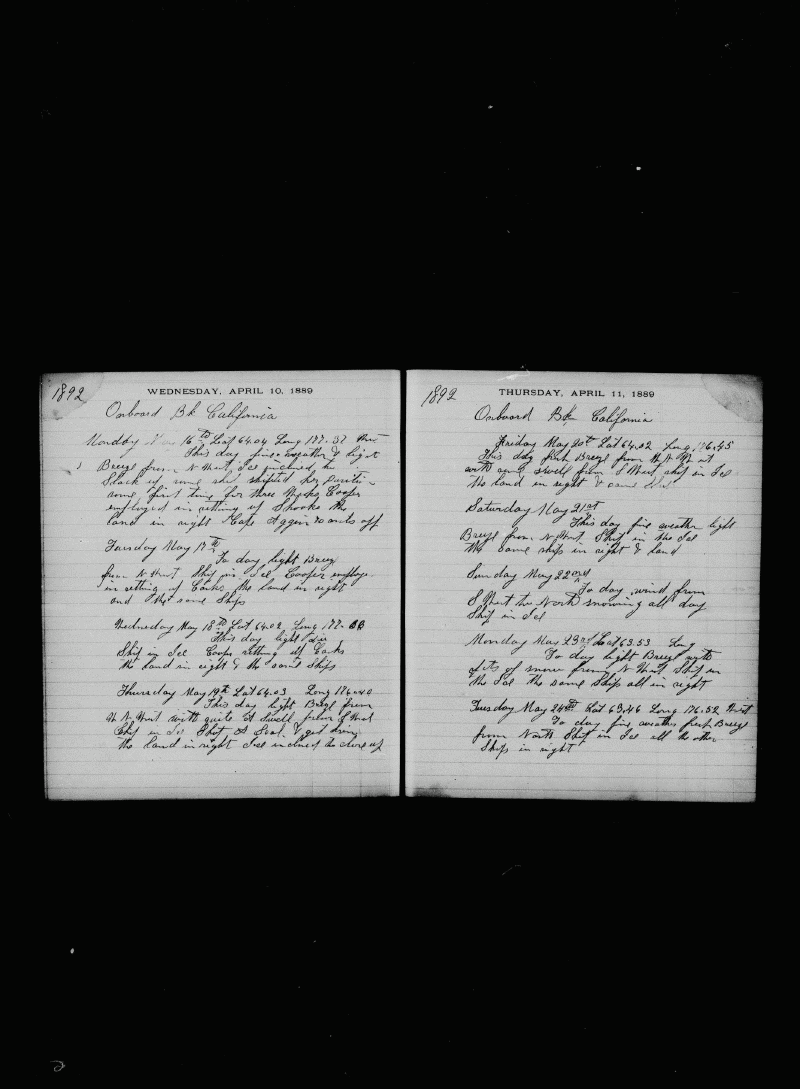 1892
WEDNESDAY, APRIL 10, 1889
Onboard Bk California
Monday 16th Lat 64.04 Long 177.37 West
This day fine weather & light
Breeze from N West, Ice inclined to
Slack up some she shifted her
some first time for three Weeks Cooper
employed in setting up Shooks the
land in sight Cape Aggen 20 mils off
Tuesday May 17th
To day light Breeze
from N West Ship in Ice Cooper employe
in setting up Casks the land in sight
and the same Ships
Wednesday May 18th Lat 64.02 Long 177.
This day light
Ship in Ice Coops setting up Casks
the land in sight & the same Ships
Thursday May 19th Lat 64.03 Long 176.40
This day light Breze from
N West with quite a Swell from S West
Ship in Ice Shot a Seal &
the land in sight Ice inclined to close up
1892
THURSDAY, APRIL 11, 1889
Onboard Bk California
Friday May 20th Lat 64.02 Long 176.45
This day fresh Breeze from N West
with some swell from S West ship in Ice
the land in sight & same
Saturday May 21st
This day fine weather light
Breeze from N West. Ship in the Ice
the same ship in sight & land
Sunday May 22nd
To day wind from
S West to North snowing all day
Ship in Ice
Monday May 23rd Lat 63.53 Long
To day light Breeze with
of snow from N West Ship in
the Ice the same Ships all in sight
Tuesday May 24th Lat 63.46 Long 176.52 West
To day fine weather fresh Breeze
from North Ship in Ice all the other
Ships in sight